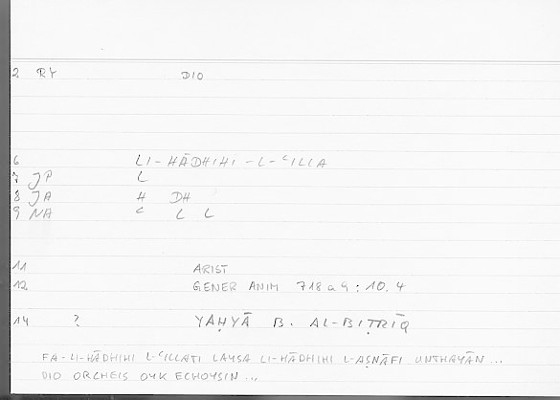 2 RY DIO
6 LI-HĀDHIHI-L-ʿILLA
7 JP L
8 JA H DH
9 NA ʿ L L
11 ARIST
12 GENER ANIM 718 a 9 : 10.4
14 ? YAḤYĀ B. AL-BIṬRĪQ
FA-LI-HĀDHIHI L-ʿILLATI LAYSA LI-HĀDHIHI L-AṢNĀFI UNTHAYĀN...
DIO ORCHEIS OYK ECHOYSIN...